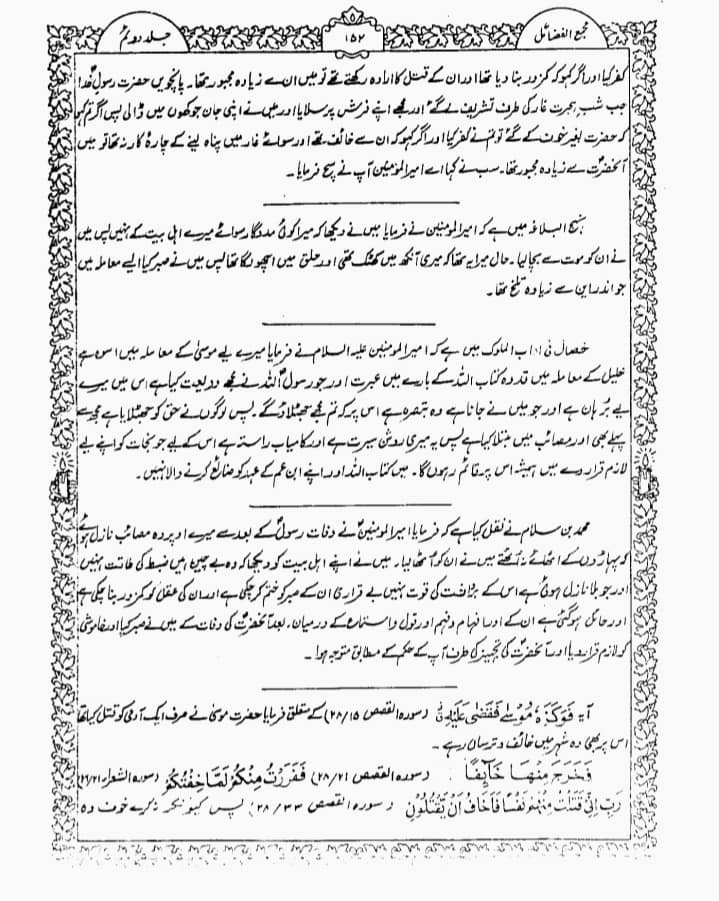 مجمع الفضائل
۱۵۲
جلد دوئم
کفر کیا اور اگر کہو کہ کمزور بنا دیا تھا اور ان کے قتل کا ارادہ رکھتے تھے تو میں ان سے زیادہ مجبور تھا۔ پانچویں حضرت رسولِ خدا
جب شبِ ہجرت غار کی طرف تشریف لے گئے اور مجھے اپنے فرش پر سلایا اور میں نے اپنی جان جوکھوں میں ڈالی پس اگر تم کہو
کہ حضرت بغیر خوف کے گئے تو تم نے کفر کیا اور اگر کہو کہ ان سے خائف تھے اور سوائے غار میں پناہ لینے کے چارۂ کار نہ تھا تو میں
آنحضرتؐ سے زیادہ مجبور تھا۔ سب نے کہا اے امیر المومنین آپ نے سچ فرمایا۔
نہج البلاغہ میں ہے کہ امیر المومنین نے فرمایا میں نے دیکھا کہ میرا کوئی مددگار سوائے میرے اہل بیت کے نہیں پس میں
نے ان کو موت سے بچا لیا۔ حال میرا یہ تھا کہ میری آنکھ میں کھٹک تھی اور حلق میں اچھو لگا تھا پس میں نے صبر کیا ایسے معاملہ میں
جو اندراین سے زیادہ تلخ تھا۔
خصال فی اداب الملوک میں ہے کہ امیر المومنین علیہ السلام نے فرمایا میرے لیے موسیٰ کے معاملہ میں اسوہ ہے
خلیل کے معاملہ میں قدوہ کتاب اللہ کے بارے میں عبرت اور جو رسولؐ اللہ نے مجھے ودیعت کیا ہے اس میں میرے
لیے برہان ہے اور جو میں نے جانا ہے وہ تبصرہ ہے اس پر کہ تم مجھے جھٹلاؤ گے۔ پس لوگوں نے حق کو جھٹلایا ہے مجھ سے
پہلے بھی اور مصائب میں مبتلا کیا ہے پس یہ میری روشن سیرت ہے اور کامیاب راستہ ہے اس کے لیے جو نجات کو اپنے لیے
لازم قرار دے میں ہمیشہ اس پر قائم رہوں گا۔ میں کتاب اللہ اور اپنے ابن عم کے عہد کو ضائع کرنے والا نہیں۔
محمد بن سلام نے نقل کیا ہے کہ فرمایا امیر المومنینؑ نے وفات رسولؐ کے بعد سے میرے اوپر وہ مصائب نازل ہوئے
کہ پہاڑوں کے اٹھائے نہ اٹھتے میں نے ان کو اٹھا لیا۔ میں نے اپنے اہل بیت کو دیکھا کہ وہ بے چین ہیں ضبط کی طاقت نہیں
اور جو بلا نازل ہوئی ہے اس کے برداشت کی قوت نہیں بے قراری ان کے صبر کو ختم کر چکی ہے اور ان کی عقل کو کمزور بنا چکی ہے
اور حائل ہو گئی ہے ان کے اور افہام و فہم اور قول و استماع کے درمیان۔ بعد آنحضرتؐ کی وفات کے میں نے صبر کیا اور خاموشی
کو لازم قرار دیا اور آنحضرتؐ کی تجہیز کی طرف آپ کے حکم کے مطابق متوجہ ہوا۔
آیہ فَوَكَزَهٗ مُوْسٰى فَقَضٰى عَلَيْهِ (سورہ القصص ۲۸/۱۵) کے متعلق فرمایا حضرت موسیٰ نے صرف ایک آدمی کو قتل کیا تھا
اس پر بھی وہ شہر میں خائف و ترساں رہے۔
فَخَرَجَ مِنْهَا خَآئِفًا (سورہ القصص ۲۸/۲۱) فَفَرَرْتُ مِنْكُمْ لَمَّا خِفْتُكُمْ (سورہ الشعراء ۲۶/۲۱)
رَبِّ اِنِّىْ قَتَلْتُ مِنْهُمْ نَفْسًا فَاَخَافُ اَنْ يَّقْتُلُوْنِ (سورہ القصص ۲۸/۳۳) پس کیونکر نہ کرے خوف وہ